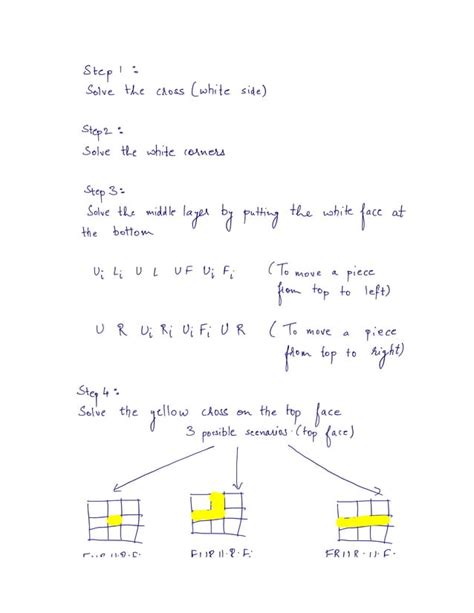 Step 1:
Solve the cross (white side)
Step2:
Solve the white corners
Step 3:
Solve the middle layer by putting the white face at
the bottom
Ui Li U L U F Ui Fi (To move a piece
from top to left)
U R Ui Ri Ui Fi U R (To move a piece
from top to right)
Step 4:
Solve the yellow cross on the top face
3 possible scenarios (top face)